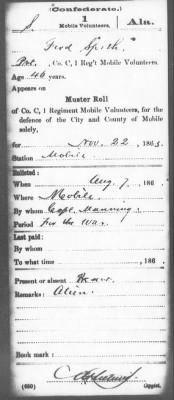 (Confederate.)
S. 1 Ala.
Mobile Volunteers.
Fred
Pvt., Co. C, 1 Reg't Mobile Volunteers.
Age 46 years.
Appears on
Muster Roll
of Co. C, 1 Regiment Mobile Volunteers, for the
defence of the City and County of Mobile
solely,
for Nov. 22, 1863.
Station Mobile
Enlisted:
When Aug 7, 186 .
Where Mobile
By whom Capt. Manning
Period For the War
Last paid:
By whom
To what time , 186 .
Present or absent
Remarks: Alien.
Book mark:
(650) Copyist.